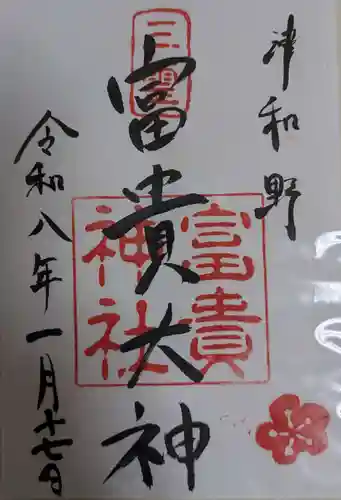 津和野
富貴大神
富貴神社
令和八年一月十七日